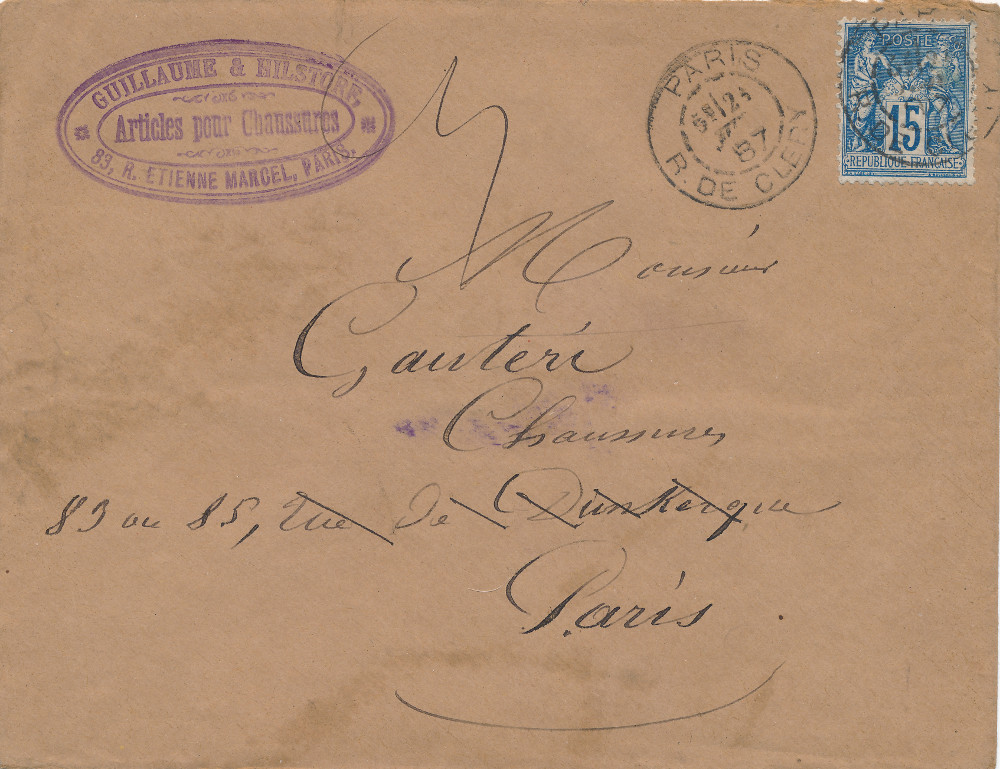 GUILLAUME & HILSTORF,
Articles pour Chaussures
83, R. ETIENNE MARCEL, PARIS.
PARIS
87
R. DE CLERY
POSTE
15
REPUBLIQUE FRANÇAISE
Monsieur
Gautéri
Chaussures
83 ou 85, rue de Dunkerque
Paris